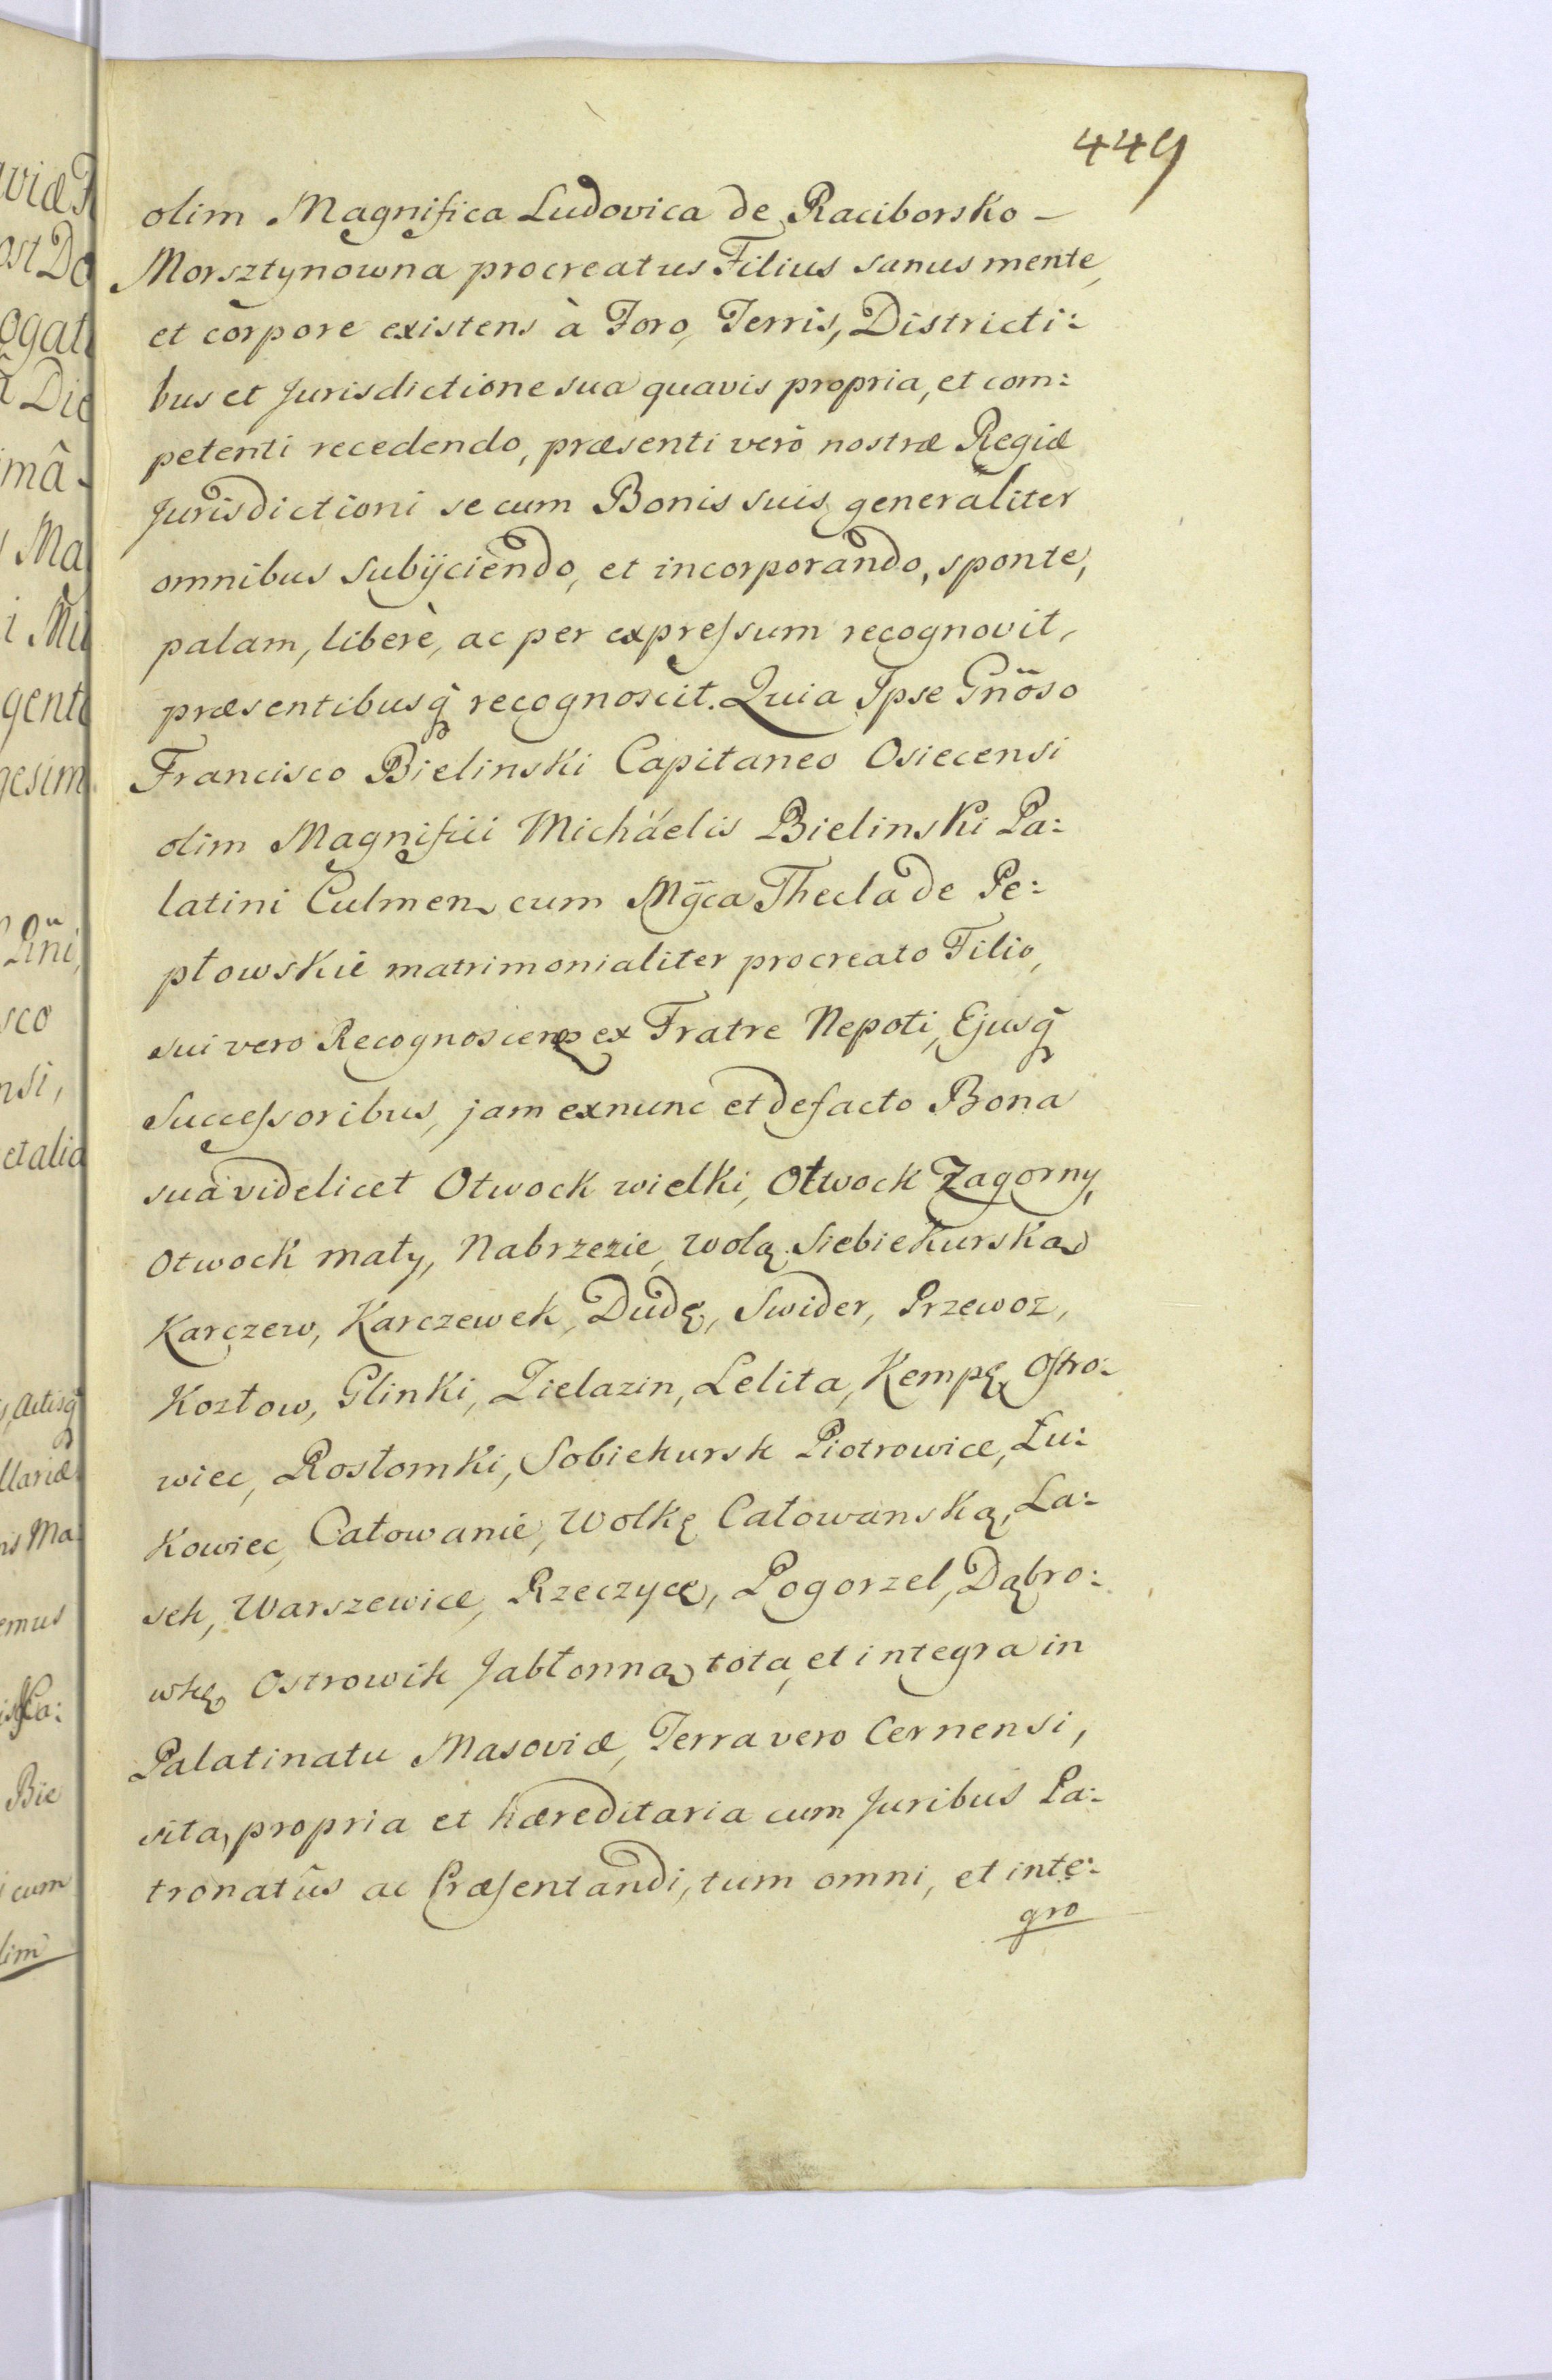 449
olim Magnifica Ludovica de Raciborsko -
Morsztynowna procreatus Filius sanus mente,
et corpore existens à Foro, Terris, Districti:
bus et Jurisdictione sua quavis propria, et com:
petenti recedendo, præsenti verò nostræ Regiæ
Jurisdictioni se cum Bonis suis generaliter
omnibus subijciendo, et incorporando, sponte,
palam, liberè, ac per expreſsum recognovit,
præsentibusq̃ recognoscit. Quia Ipse Gnõso
Francisco Bielinski Capitaneo Osiecensi
olim Magnifici Michäelis Bielinski Pa:
latini Culmen. cum Mg̃ca Thecla de Pe:
płowskie matrimonialiter procreato Filio,
sui vero Recognoscens ex Fratre Nepoti, Ejusq̃
Succeſsoribus, jam exnunc et defacto Bona
sua videlicet Otwock wielki, Otwock Zagorny,
Otwock mały, Nabrzezie, Wolą Siebiekurską
Karczew, Karczewek, Dudę, Swider, Przewoz,
Kozłow, Glinki, Zielazin, Lelita, Kempę, Oſtro:
wiec, Rosłomki, Sobiekursk Piotrowice, Łu:
kowiec, Całowanie, Wolkę Całowanską, La:
sek, Warszewice, Rzeczycę, Pogorzel, Dąbro:
wkę, Ostrowik Jabłonną tota, et integra in
Palatinatu Masoviæ, Terra vero Cernensi,
sita, propria et hæreditaria cum Juribus Pa:
tronatûs ac Præſentandi, tum omni, et inte:
gro